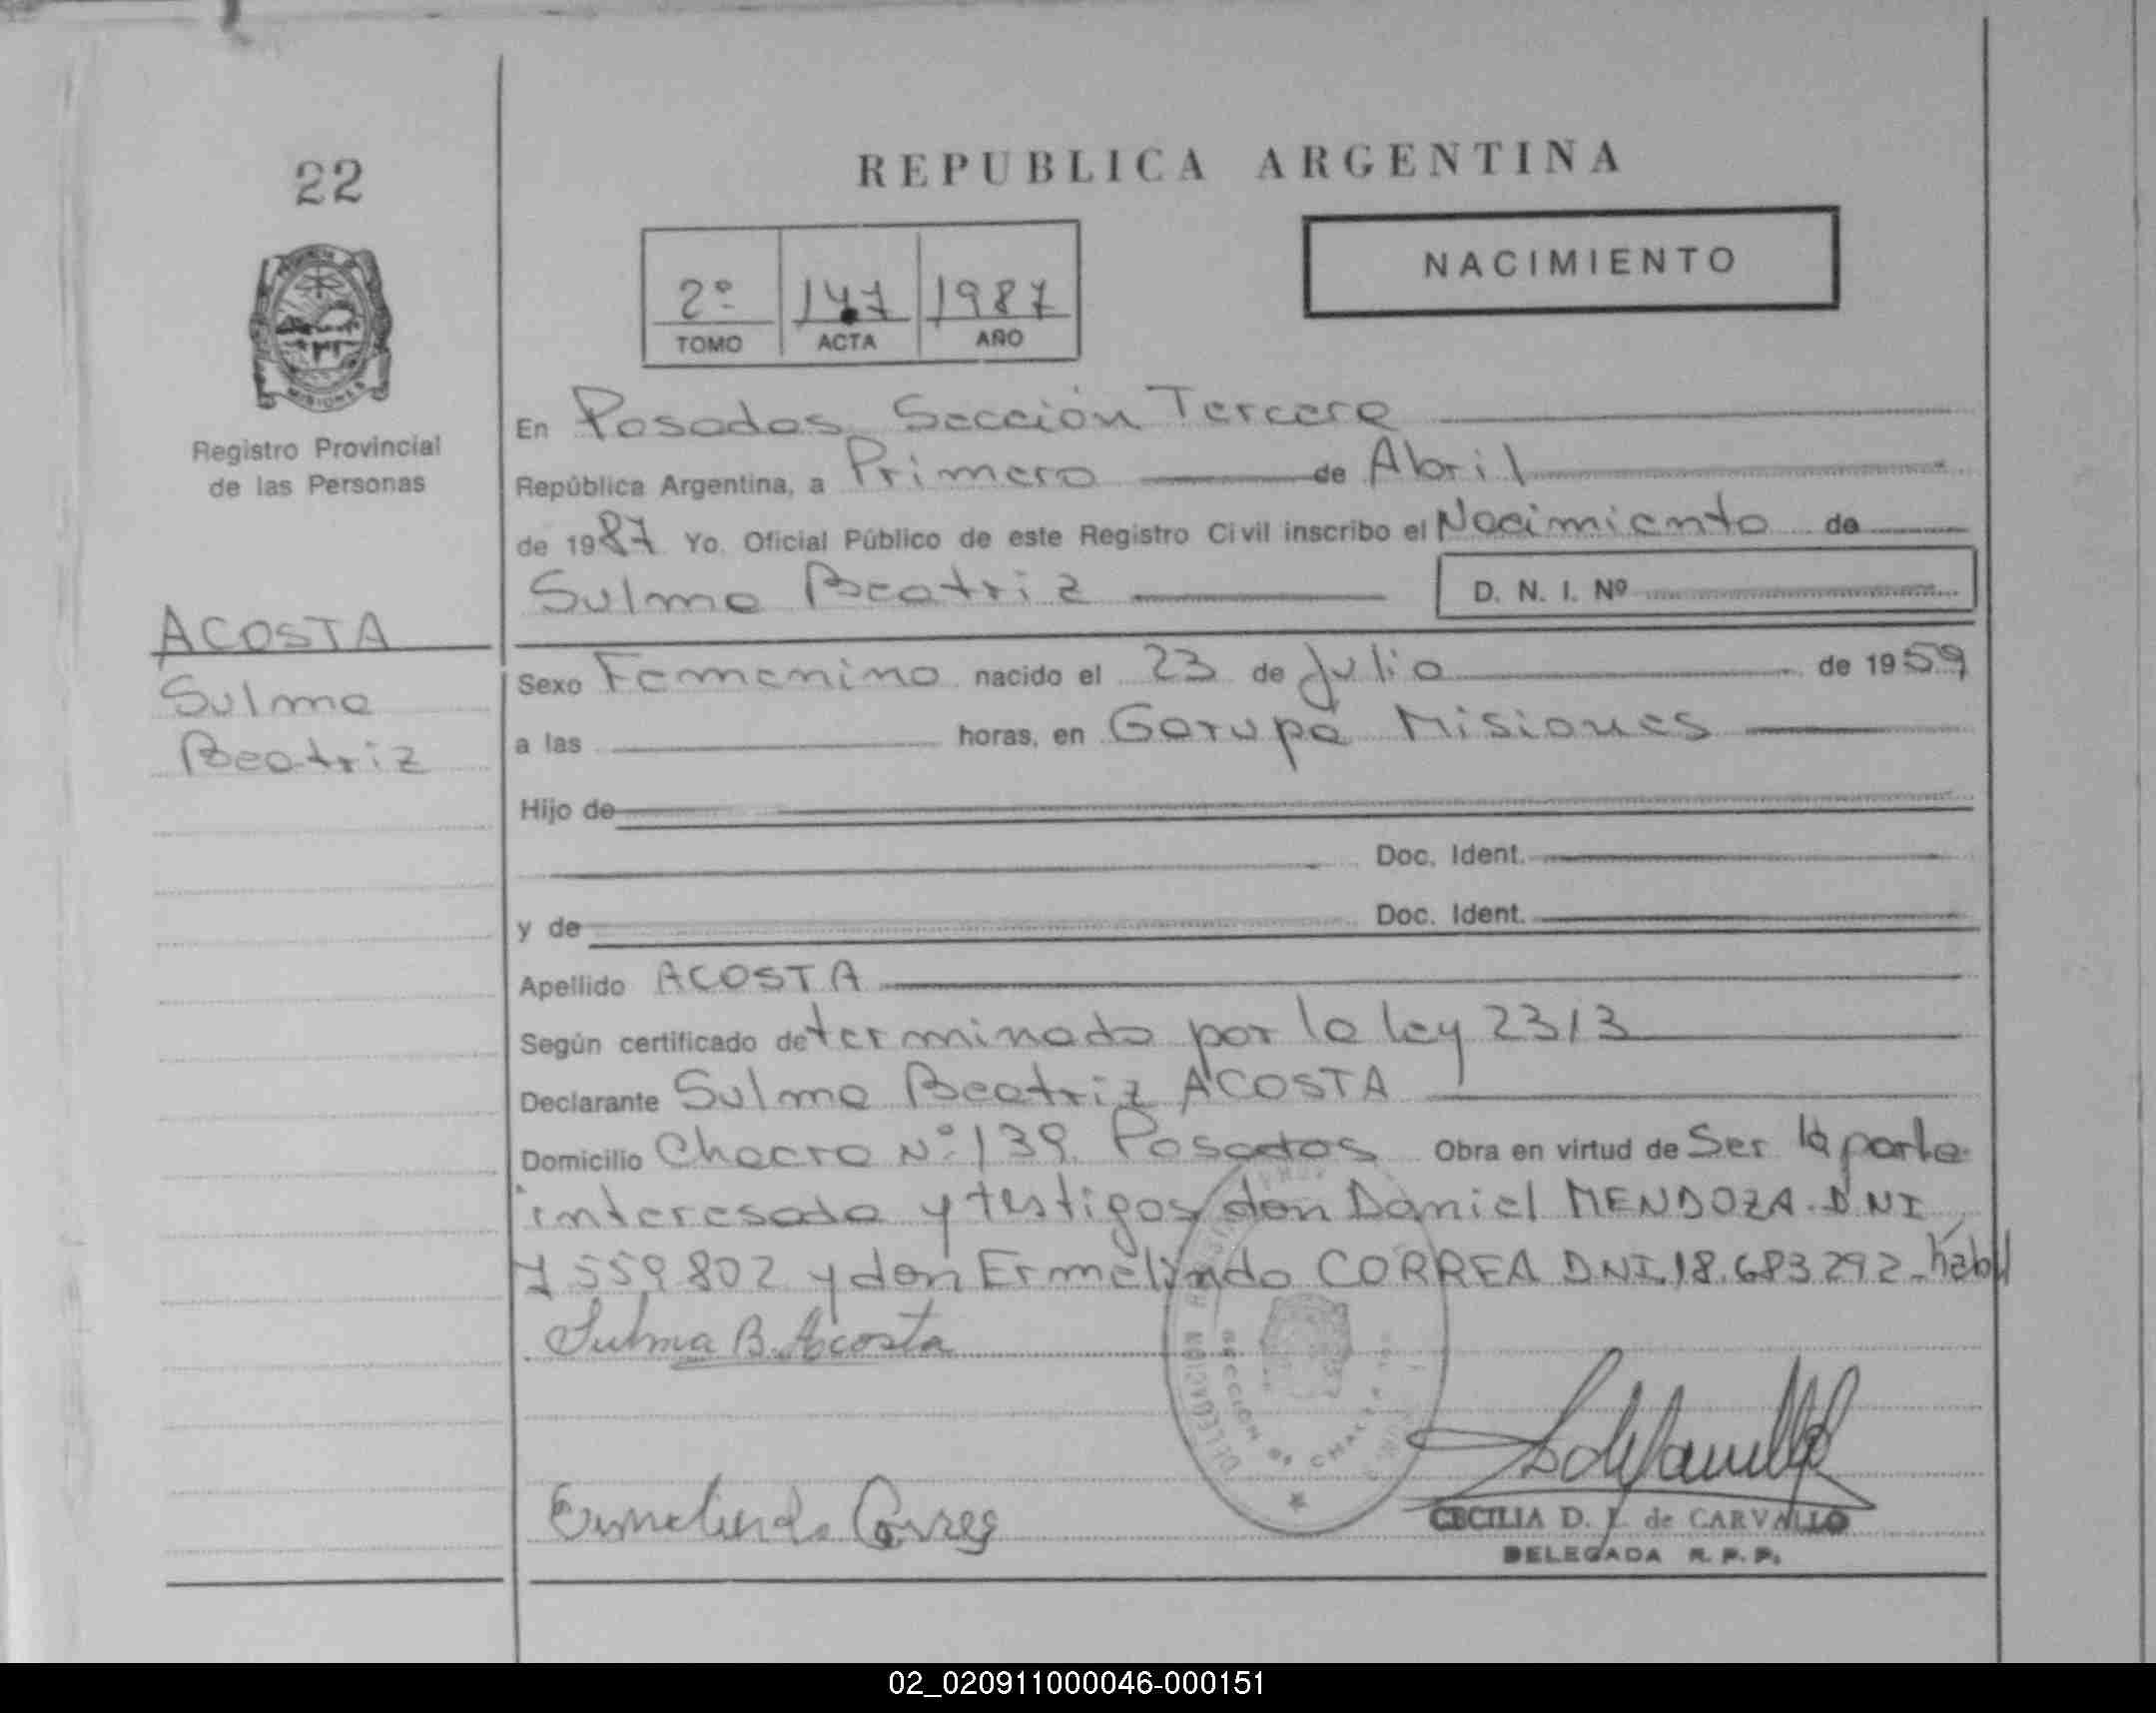 22
REPUBLICA ARGENTINA
NACIMIENTO
2º 147 1987
TOMO ACTA AÑO
Registro Provincial
de las Personas
En Posadas Sección Tercera
República Argentina, a Primero de Abril
de 1987 Yo, Oficial Público de este Registro Civil inscribo el Nacimiento de
Sulma Beatriz D. N. I. Nº
ACOSTA
Sulma
Beatriz
Sexo Femenino nacido el 23 de Julio de 1959
a las horas, en Garupa Misiones
Hijo de
Doc. Ident.
y de Doc. Ident.
Apellido ACOSTA
Según certificado determinado por la ley 2313
Declarante Sulma Beatriz ACOSTA
Domicilio Chacra Nº 139 Posadas Obra en virtud de Ser la parte
interesada y testigos don Daniel MENDOZA. DNI
7559802 y don Ermelindo CORREA DNI.18.683292-
Sulma B. Acosta
DELEGACION
SECCION
Ermelindo Correa
CECILIA D. de CARVALLO
DELEGADA R. P. P.
02_020911000046-000151